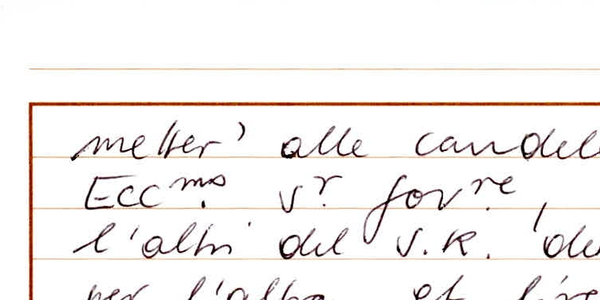 metter' alle candel
Ecc.mo S.r Gov.re,
l'altri del S.R. de
per l'altra et l'